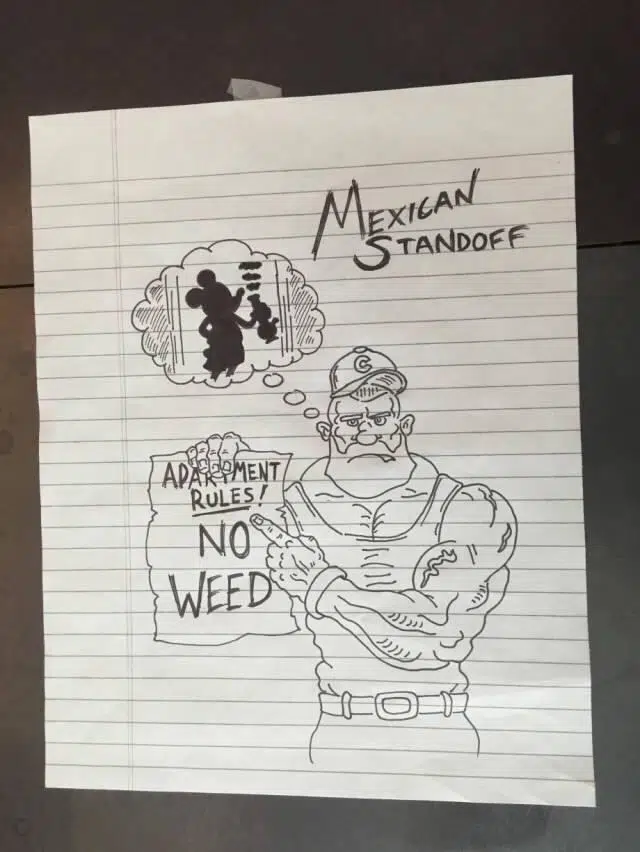 MEXICAN
STANDOFF
C
APARTMENT
RULES!
NO
WEED